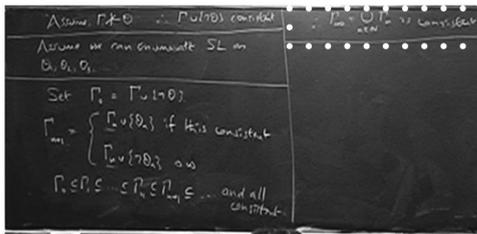 Assume Γ⊬θ ∴ Γ∪{¬θ} consistent
Assume we can enumerate SL as
θ₁, θ₂, θ₃, ...
Set Γ₀ = Γ∪{¬θ}.
Γₙ₊₁ = { Γₙ∪{θₙ} if this consistent
Γₙ∪{¬θₙ} o/w
Γ₀⊆Γ₁⊆ ... ⊆Γₙ⊆Γₙ₊₁⊆ ... and all
consistent.
∴ Γ∞ = ⋃ Γₙ is consistent
n∈ℕ